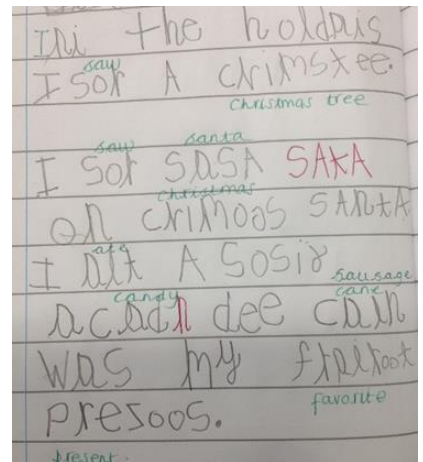 Ini the holdais
say
I sor A crimstee.
christmas tree
say santa
I sor SASA SAKA
christmas
on crimoos SANtA
ate
I alt A sosir sausage
candy cane
acadn dee cain
was my frairoot
favorite
presoos.
present.